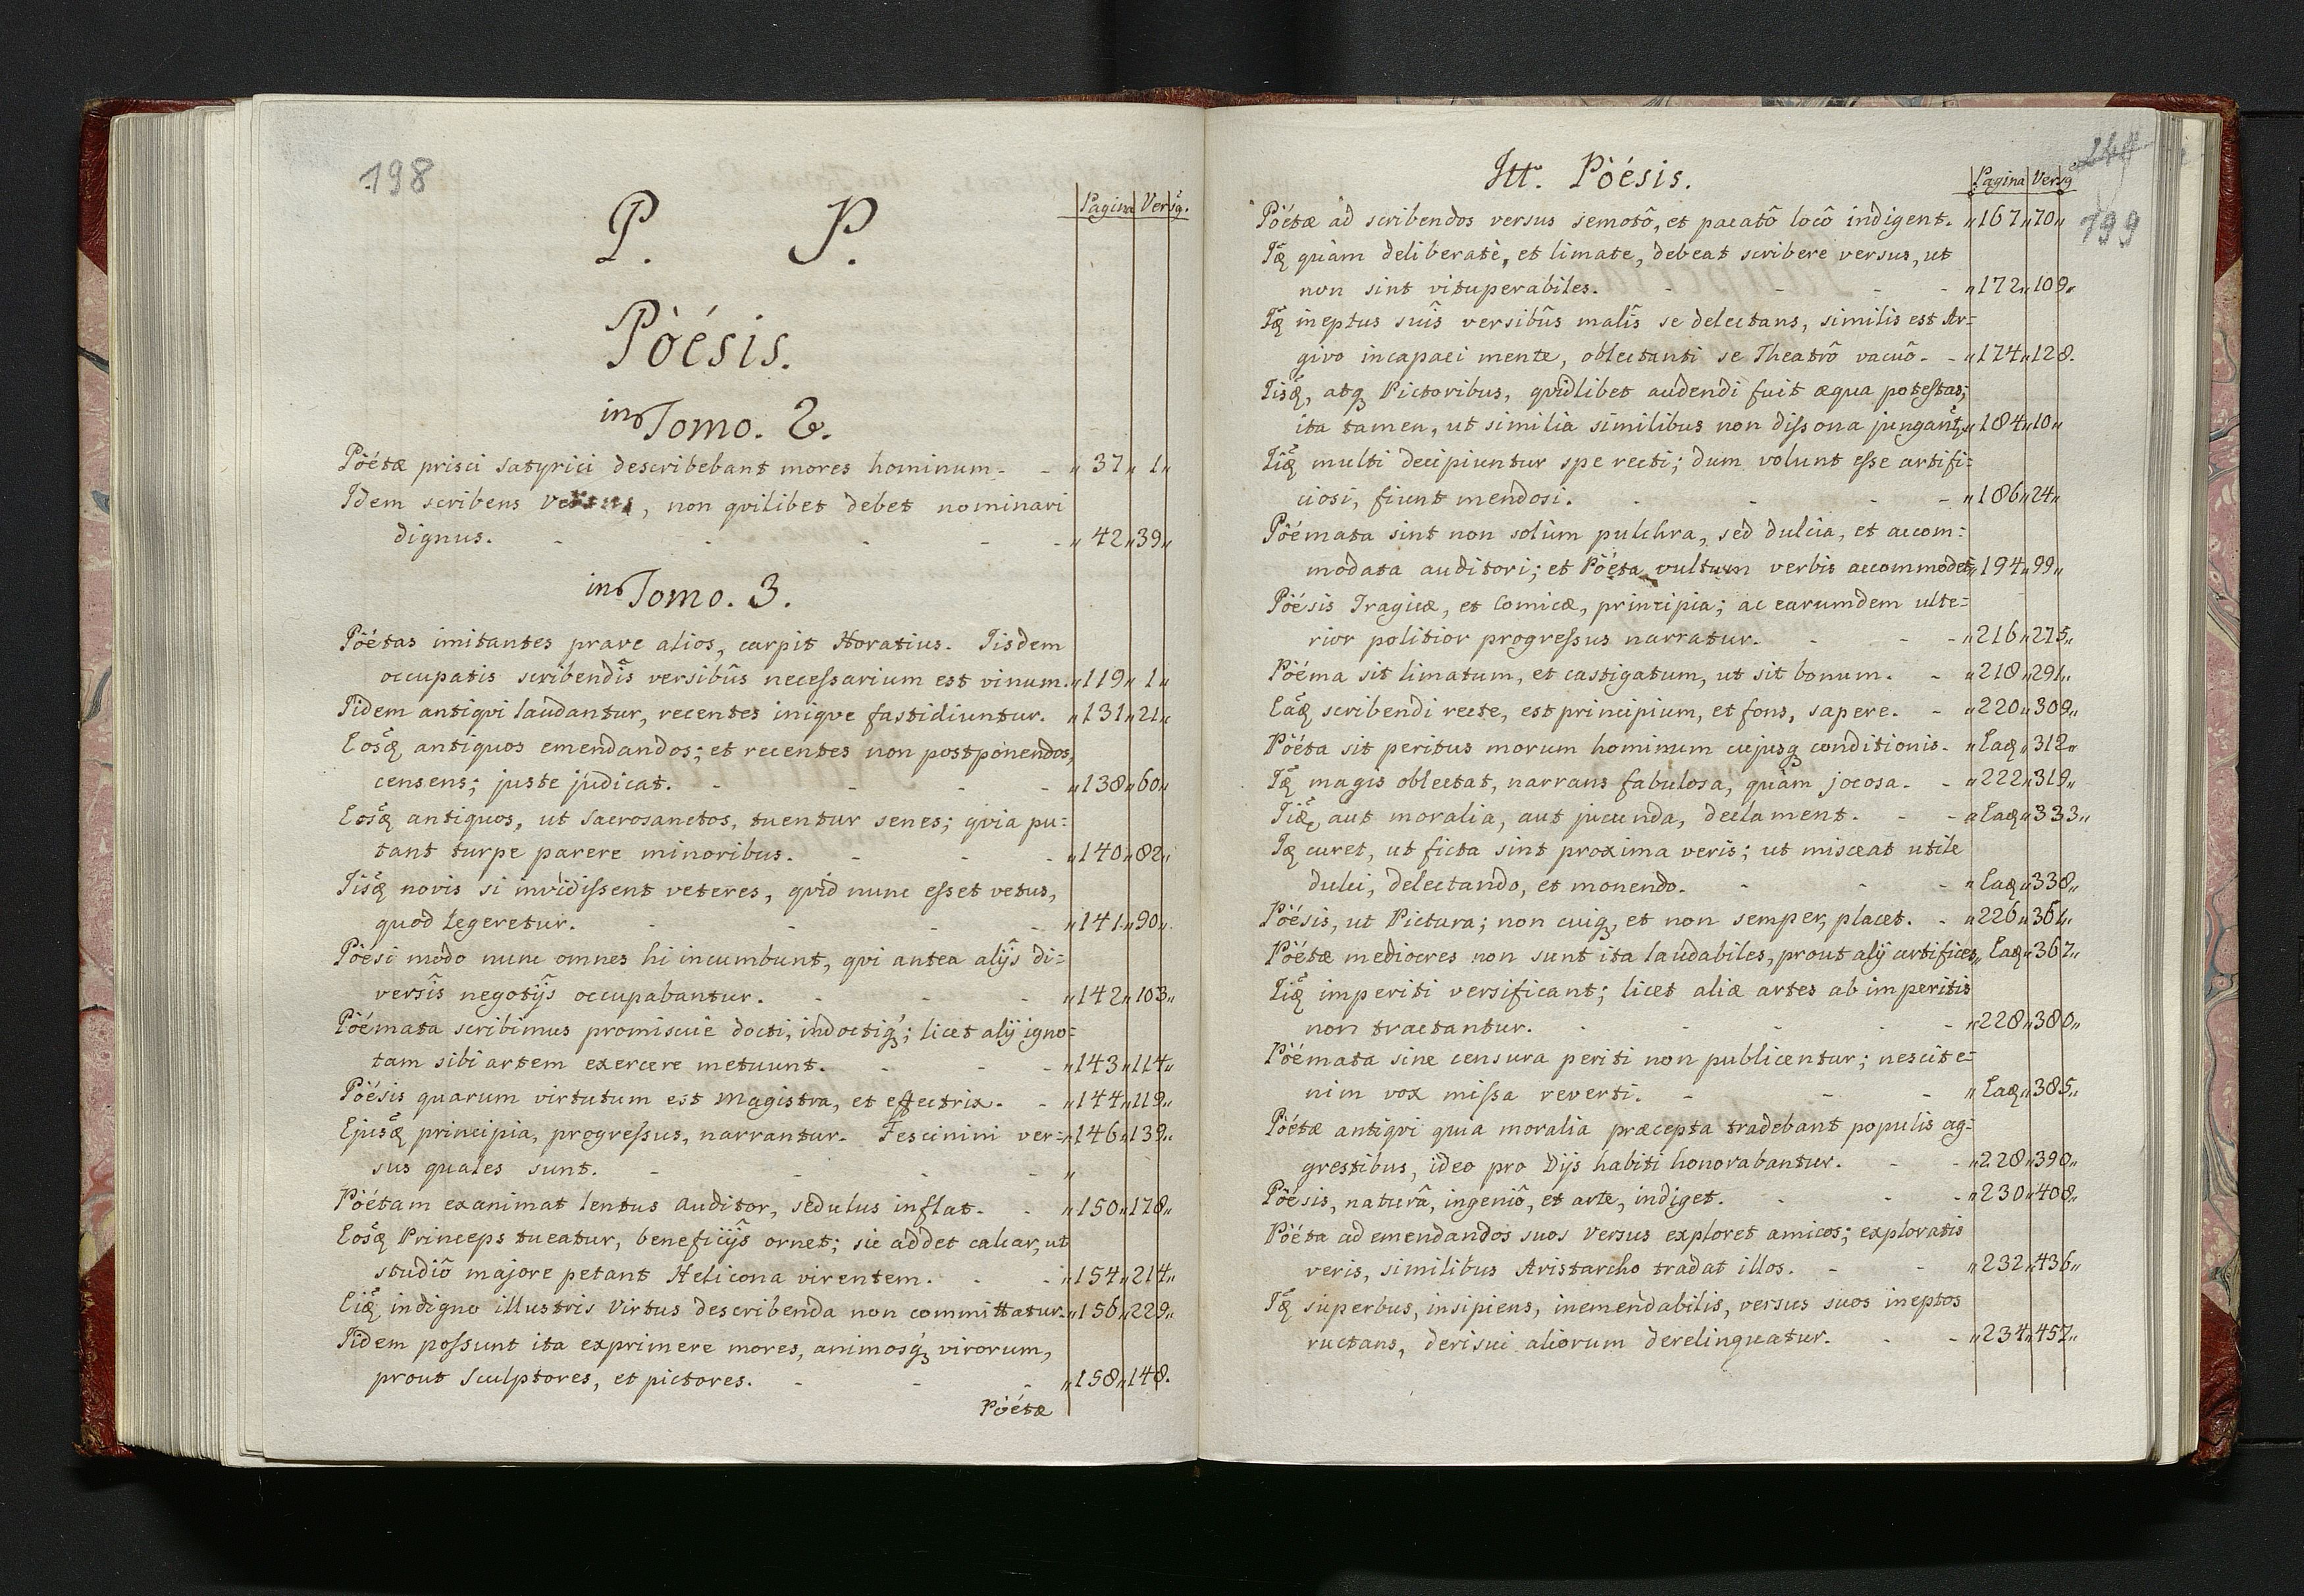 198
P. P.
Pagina Versq.
Pòésis.
in Tomo. 2.
Pòétæ prisci satyrici describebant mores hominum. - - „ 37 „ 1 „
Idem scribens versus, non qvilibet debet nominari
dignus. - - - - - „ 42 „ 39 „
in Tomo. 3.
Pòétas imitantes prave alios, carpit Horatius. Iisdem
occupatis scribendîs versibûs necessarium est vinum. „ 119 „ 1 „
Iidem antiqvi laudantur, recentes iniqve fastidiuntur. „ 131 „ 21 „
Eosq antiquos emendandos; et recentes non postponendos,
censens; juste judicat. - - - - „ 138 „ 60 „
Eosq antiquos, ut Sacrosanctos, tuentur senes; qvia pu=
tant turpe parere minoribus. - - - „ 140 „ 82 „
Iisq novis si invidissent veteres, qvid nunc esset vetus,
quod legeretur. - - - - „ 141 „ 90 „
Pòési modo nunc omnes hi incumbunt, qvi antea alijs di=
versîs negotijs occupabantur. - - - „ 142 „ 103 „
Pòémata scribimus promiscue docti, indoctiq; licet alij igno=
tam sibi artem exercere metuunt. - - - „ 143 „ 114 „
Pòésis quarum virtutum est Magistra, et effectrix. - „ 144 „ 119 „
Ejusq principia, progressus, narrantur. Fescinini ver= „ 146 „ 139 „
sus quales sunt. - - - - „
Pòétam exanimat lentus auditor, sedulus inflat. - „ 150 „ 178 „
Eosq Princeps tueatur, beneficijs ornet; sic addet calcar, ut
studiô majore petant Helicona virentem. - - „ 154 „ 214 „
Eiq indigno illustris Virtus describenda non committatur. „ 156 „ 229 „
Iidem possunt ita exprimere mores, animosq virorum,
prout Sculptores, et pictores. - - - „ 158 „ 148.
Pòétæ
Itt. Pòésis.
Pagina Versq
199
Pòétæ ad scribendos versus semotô, et pacatô locô indigent. „ 167 „ 70 „
Iq quàm deliberatè, et limate, debeat scribere versus, ut
non sint vituperabiles. - - - - „ 172 „ 109 „
Iq ineptus suîs versibûs malîs se delectans, similis est Ar=
givo incapaci mente, oblectanti se Theatrô vacuô. - „ 174 „ 128.
Iisq, atq Pictoribus, qvidlibet audendi fuit æqua potestas;
ita tamen, ut similia similibus non dissona jungantq „ 184 „ 10 „
Iiq multi decipiuntur spe recti; dum volunt esse artifi=
ciosi, fiunt mendosi. - - - - „ 186 „ 24 „
Pòémata sint non solùm pulchra, sed dulcia, et accom=
modata auditori; et Pòéta vultum verbis accommodet „ 194 „ 99 „
Pòésis Tragicæ, et Comicæ, principia; ac earumdem ulte=
rior politior progressus narratur. - - - „ 216 „ 275 „
Pòéma sit limatum, et castigatum, ut sit bonum. - „ 218 „ 291 „
Eaq scribendi recte, est principium, et fons, sapere. - „ 220 „ 309 „
Pòéta sit peritus morum hominum cujusq conditionis. „ Eaq „ 312 „
Iq magis oblectat, narrans fabulosa, quàm jocosa. - „ 222 „ 319 „
Iiq, aut moralia, aut jucunda, declament. - - „ Eaq „ 333 „
Iq curet, ut ficta sint proxima veris; ut misceat utile
dulci, delectando, et monendo. - - - „ Eaq „ 338 „
Pòésis, ut Pictura; non cuiq, et non semper, placet. - „ 226 „ 361 „
Pòétæ mediocres non sunt ita laudabiles, prout alij artifices „ Eaq „ 367 „
Iiq imperiti versificant; licet aliæ artes ab imperitis
non tractantur. - - - - - „ 228 „ 380 „
Pòémata sine censura periti non publicentur; nescit e=
nim vox missa reverti. - - - „ Eaq „ 385 „
Pòétæ antiqvi quia moralia præcepta tradebant populis ag=
grestibus, ideo pro Dijs habiti honorabantur. - - „ 228 „ 390 „
Pòésis, naturâ, ingeniô, et arte, indiget. - - - „ 230 „ 408 „
Pòéta ad emendandos suos versus exploret amicos; exploratis
veris, similibus Aristarcho tradat illos. - - „ 232 „ 436 „
Iq superbus, insipiens, inemendabilis, versus suos ineptos
ructans, derisui aliorum derelinquatur. - - „ 234 „ 457 „